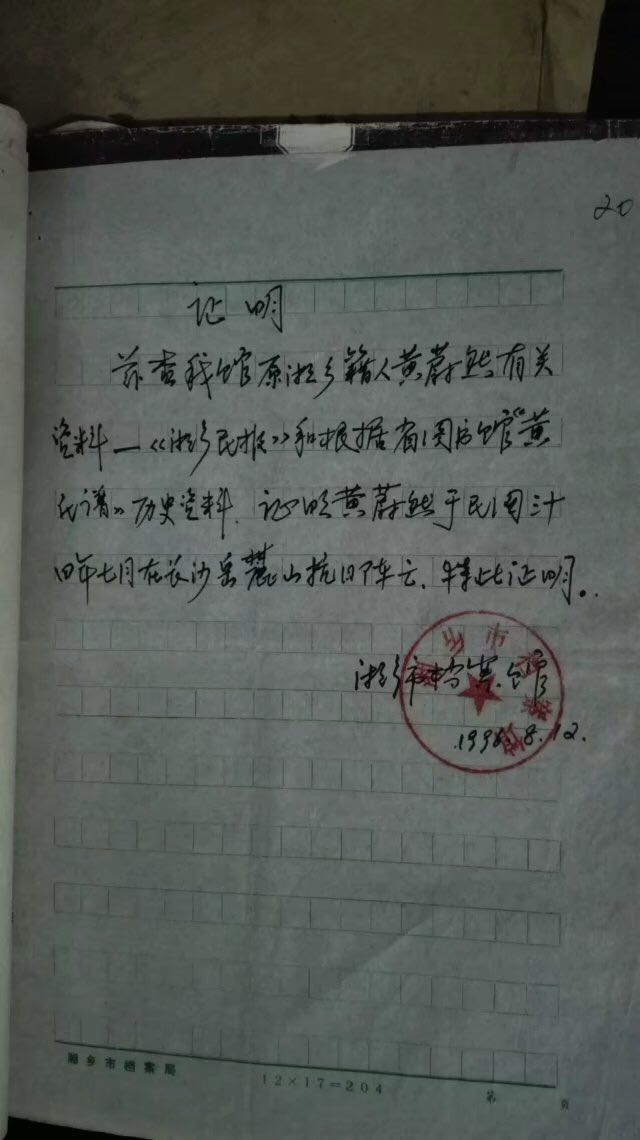 20
证明
兹查我馆原湘乡籍人黄蔚然有关
资料—《湘乡民报》和根据省图书馆“黄
氏谱”历史资料，证明黄蔚然于民国三十
四年七月在长沙岳麓山抗日阵亡，特此证明。
湘乡市档案馆
8.12.
湘乡市档案局
12×17=204
第 页